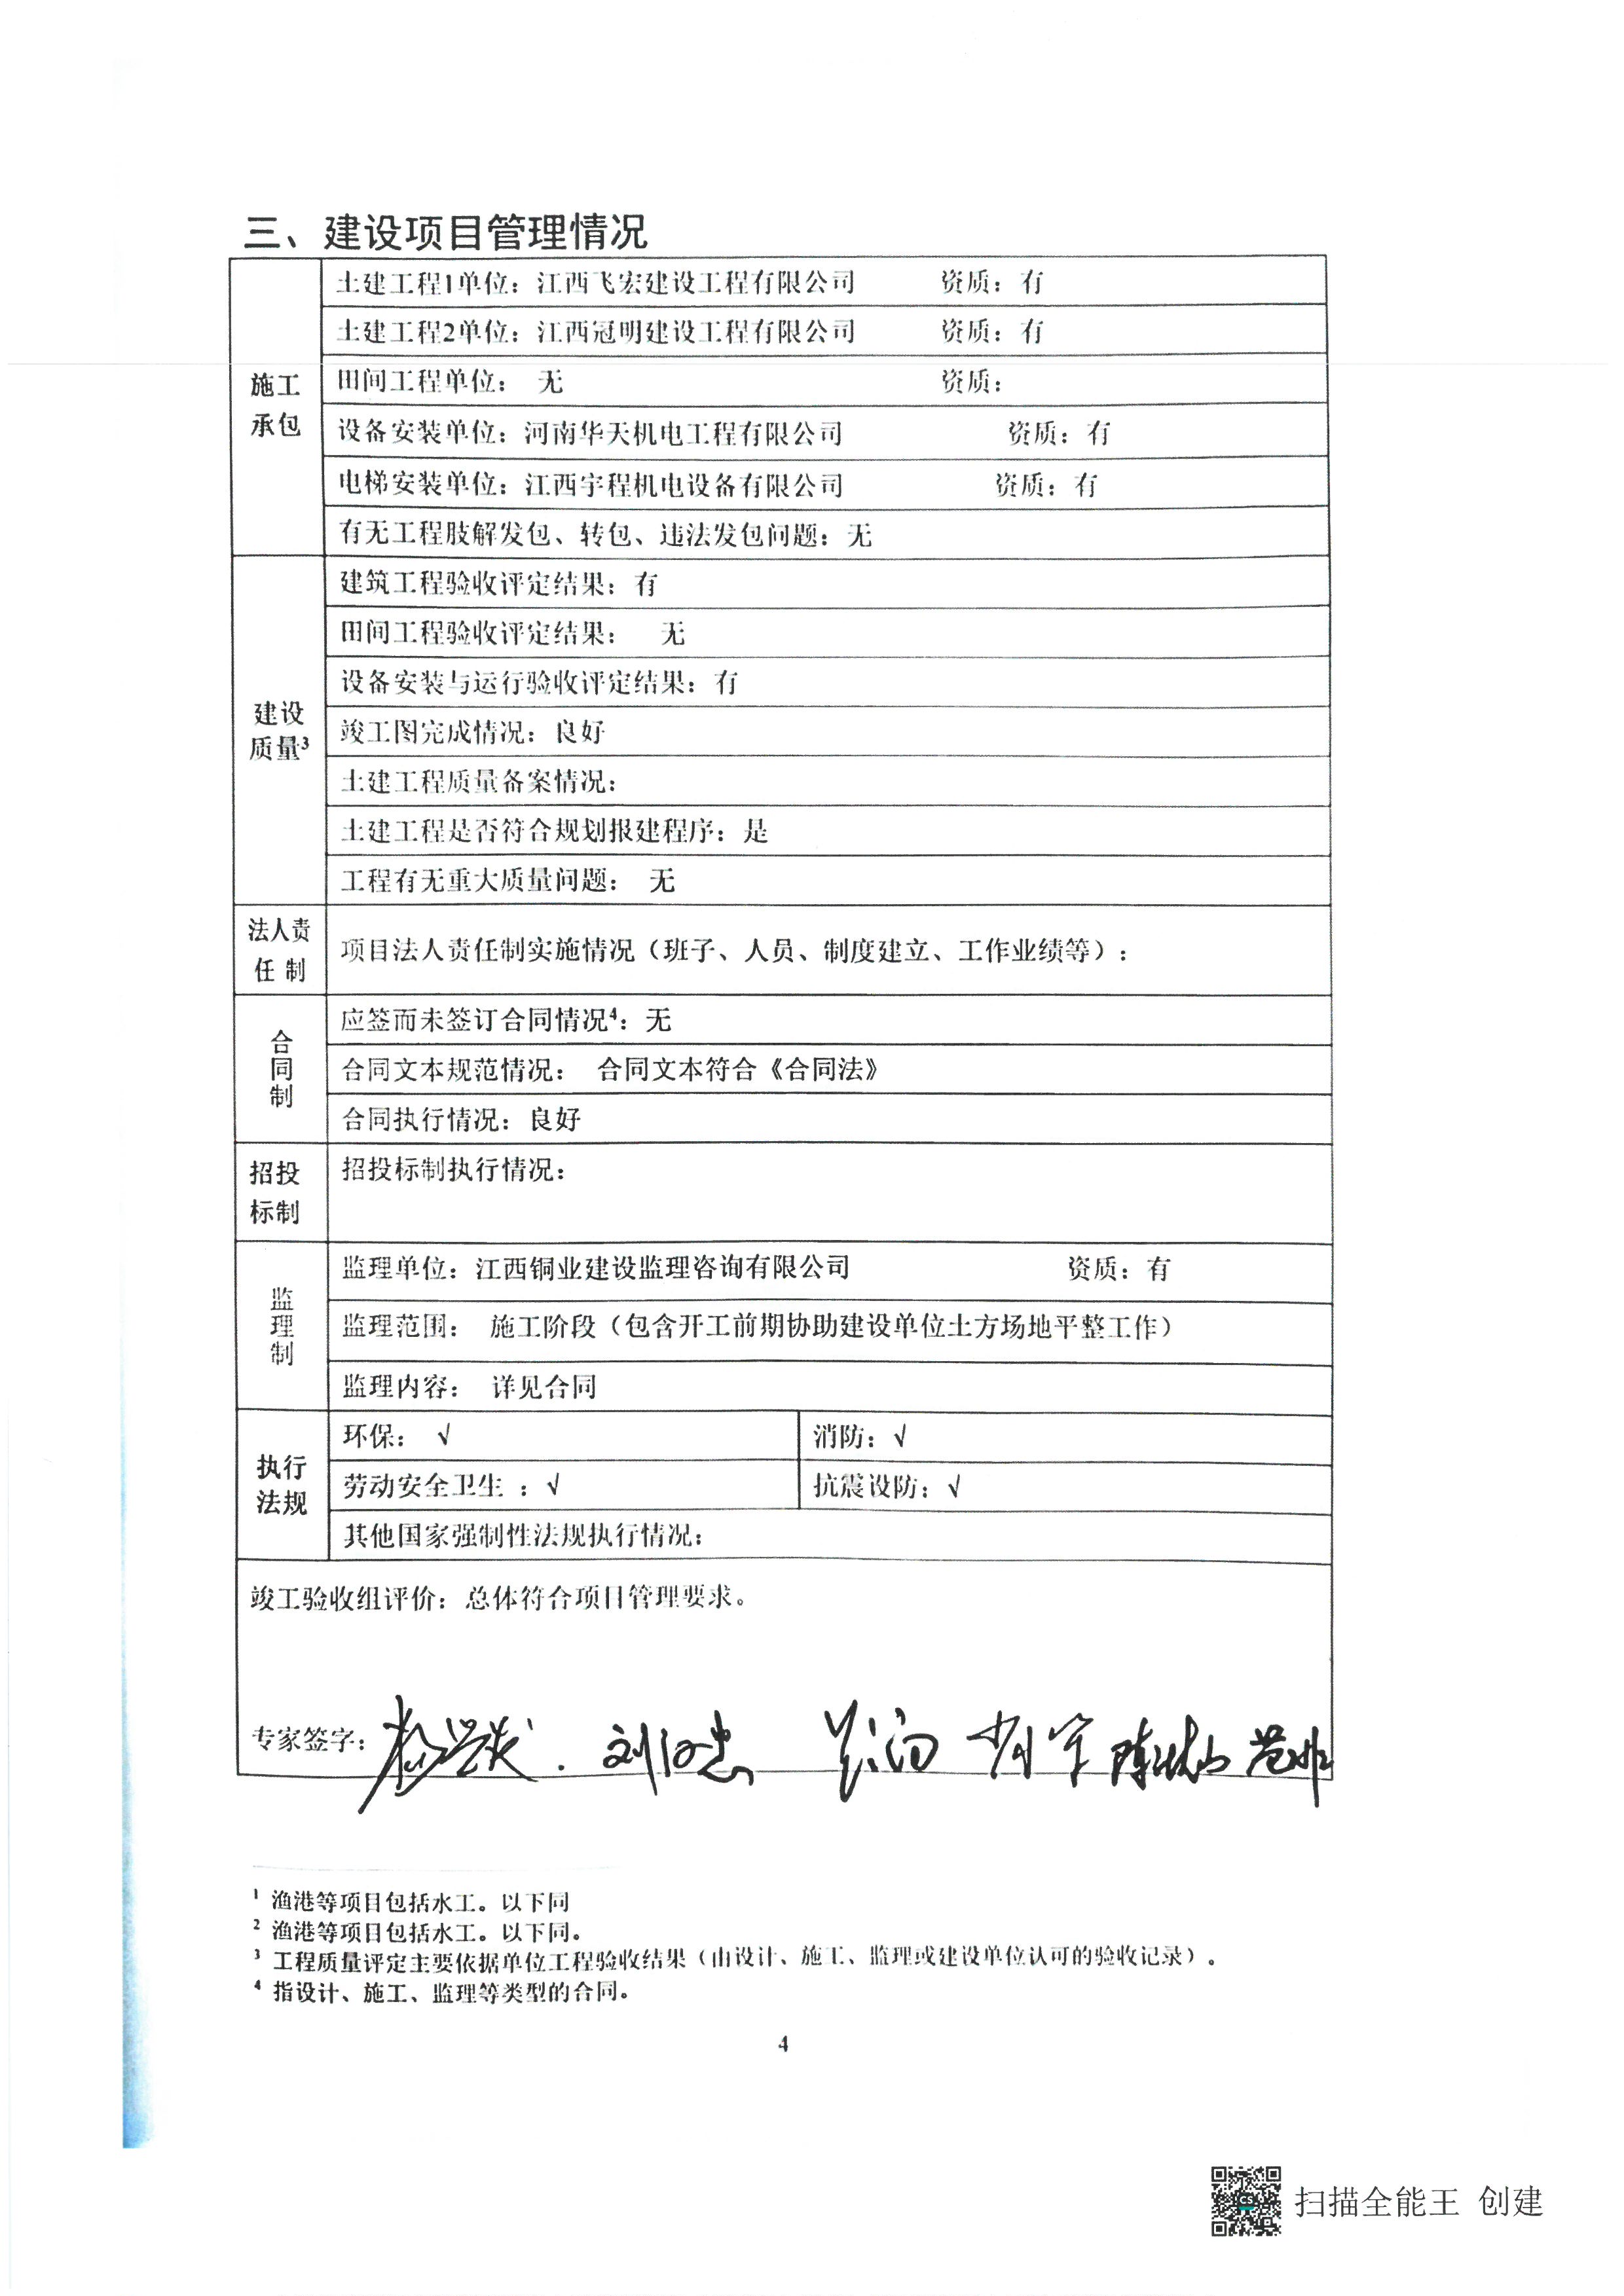 三、建设项目管理情况
施工
承包
土建工程1单位：江西飞宏建设工程有限公司 资质：有
土建工程2单位：江西冠明建设工程有限公司 资质：有
田间工程单位： 无 资质：
设备安装单位：河南华天机电工程有限公司 资质：有
电梯安装单位：江西宇程机电设备有限公司 资质：有
有无工程肢解发包、转包、违法发包问题：无
建设
质量³
建筑工程验收评定结果：有
田间工程验收评定结果： 无
设备安装与运行验收评定结果：有
竣工图完成情况：良好
土建工程质量备案情况：
土建工程是否符合规划报建程序：是
工程有无重大质量问题： 无
法人责
任 制
项目法人责任制实施情况（班子、人员、制度建立、工作业绩等）：
合
同
制
应签而未签订合同情况⁴：无
合同文本规范情况： 合同文本符合《合同法》
合同执行情况：良好
招投
标制
招投标制执行情况：
监
理
制
监理单位：江西铜业建设监理咨询有限公司 资质：有
监理范围： 施工阶段（包含开工前期协助建设单位土方场地平整工作）
监理内容： 详见合同
执行
法规
环保： √ 消防：√
劳动安全卫生 ：√ 抗震设防：√
其他国家强制性法规执行情况：
竣工验收组评价：总体符合项目管理要求。
专家签字：
¹ 渔港等项目包括水工。以下同
² 渔港等项目包括水工。以下同。
³ 工程质量评定主要依据单位工程验收结果（由设计、施工、监理或建设单位认可的验收记录）。
⁴ 指设计、施工、监理等类型的合同。
4
扫描全能王 创建